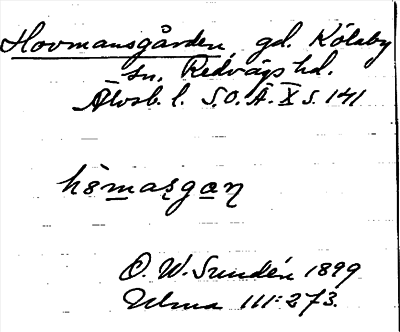 Hovmansgården, gd. Kölaby
sn, Redvägs hd.
Älvsb. l. S.O.Ä. X s. 141
hòmaʂgan
O. W. Sundén 1899
Ulma 111:273.